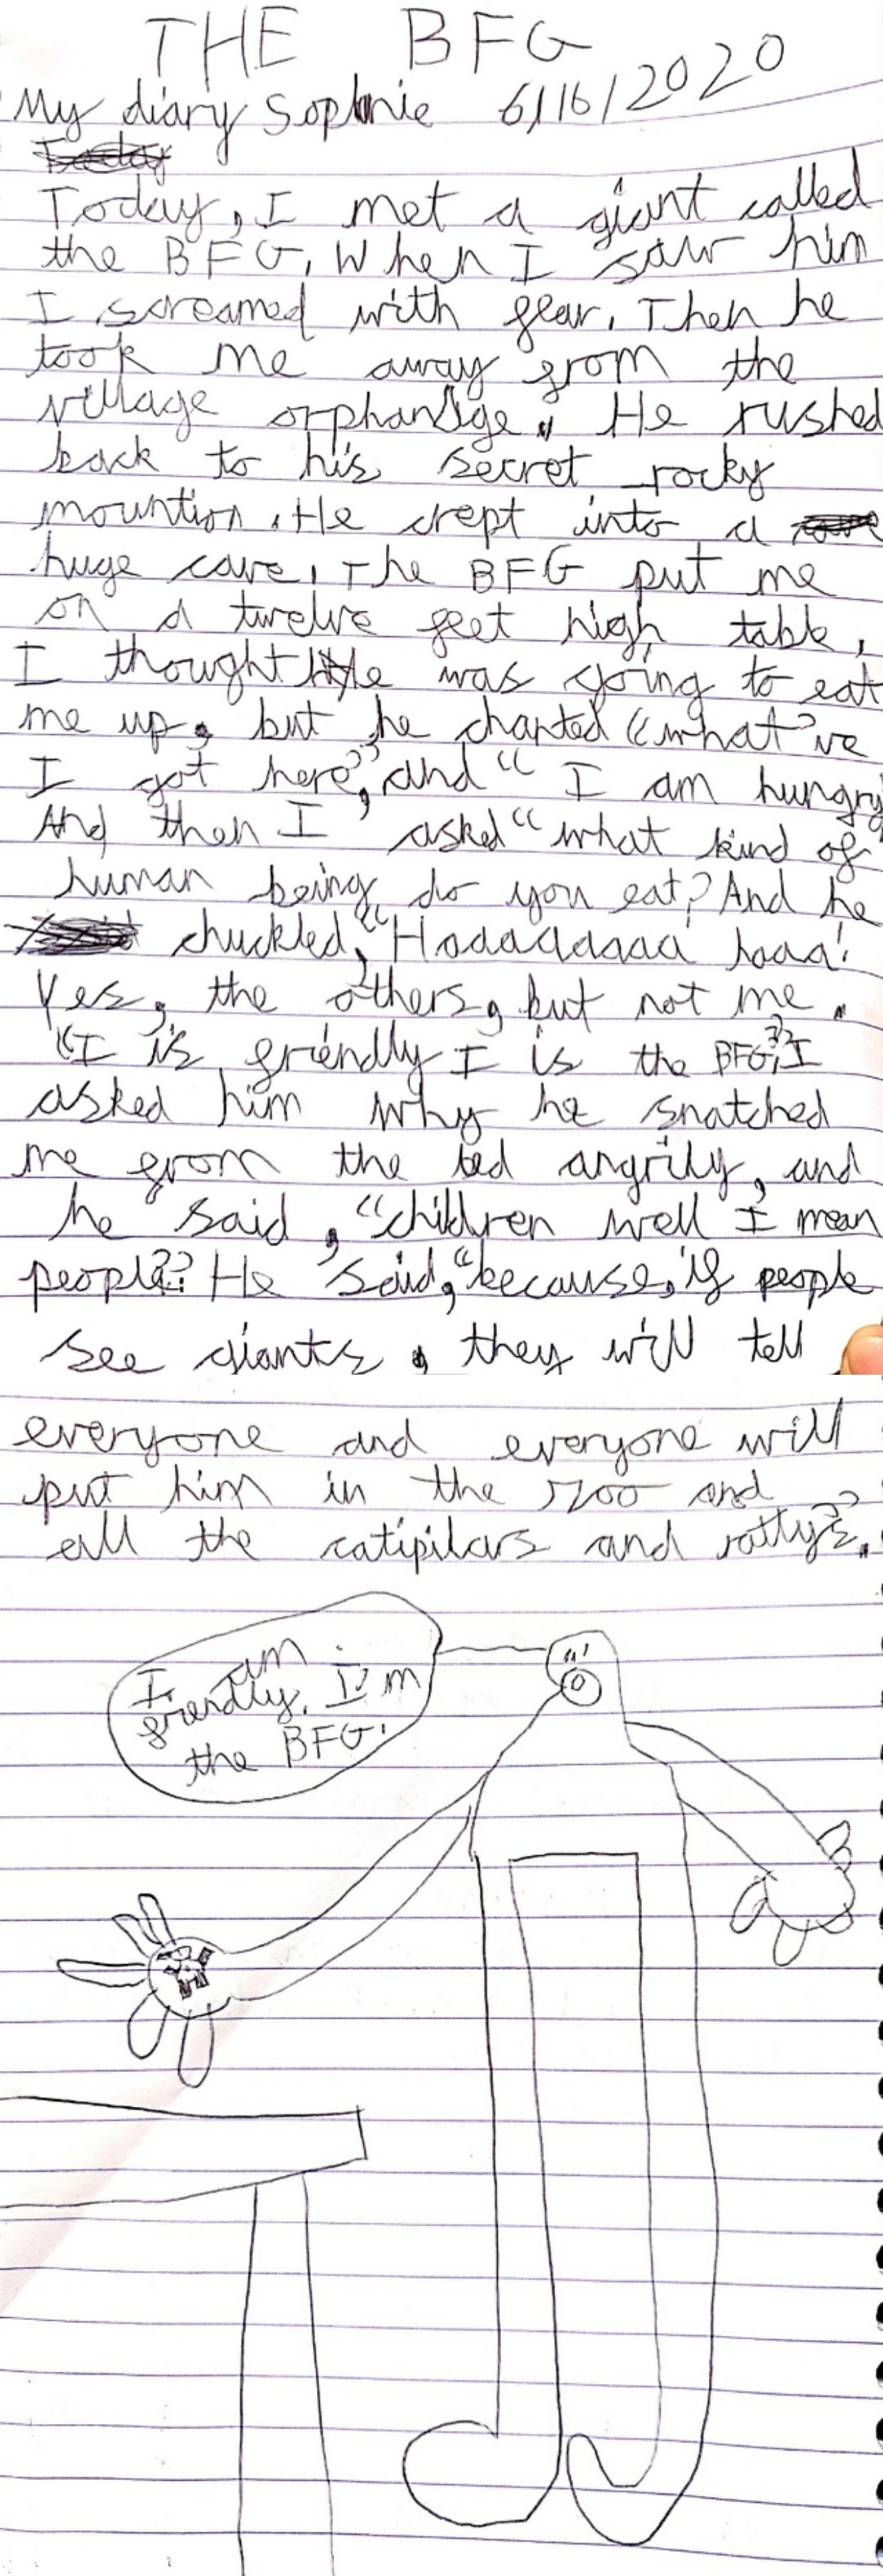 THE BFG
My diary Sophie 6/16/2020
Today, I met a giant called
the BFG. When I saw him
I screamed with fear. Then he
took me away from the
village orphanage. He rushed
back to his secret rocky
mountion. He crept into a
huge cave. The BFG put me
on a twelve feet high table,
I thought he was going to eat
me up, but he chanted “what've
I got here”, and “I am hungry
And then I asked “what kind of
human being do you eat? And he
chuckled, “Haaaaaaaa haaa!
Yes, the others, but not me.
“I is friendly I is the BFG”, I
asked him why he snatched
me from the bed angrily, and
he said, “children well I mean
people?” He said, “because, if people
see giants, they will tell
everyone and everyone will
put him in the zoo and
all the catipilars and rattys”.
I am
frendly. I'm
the BFG.